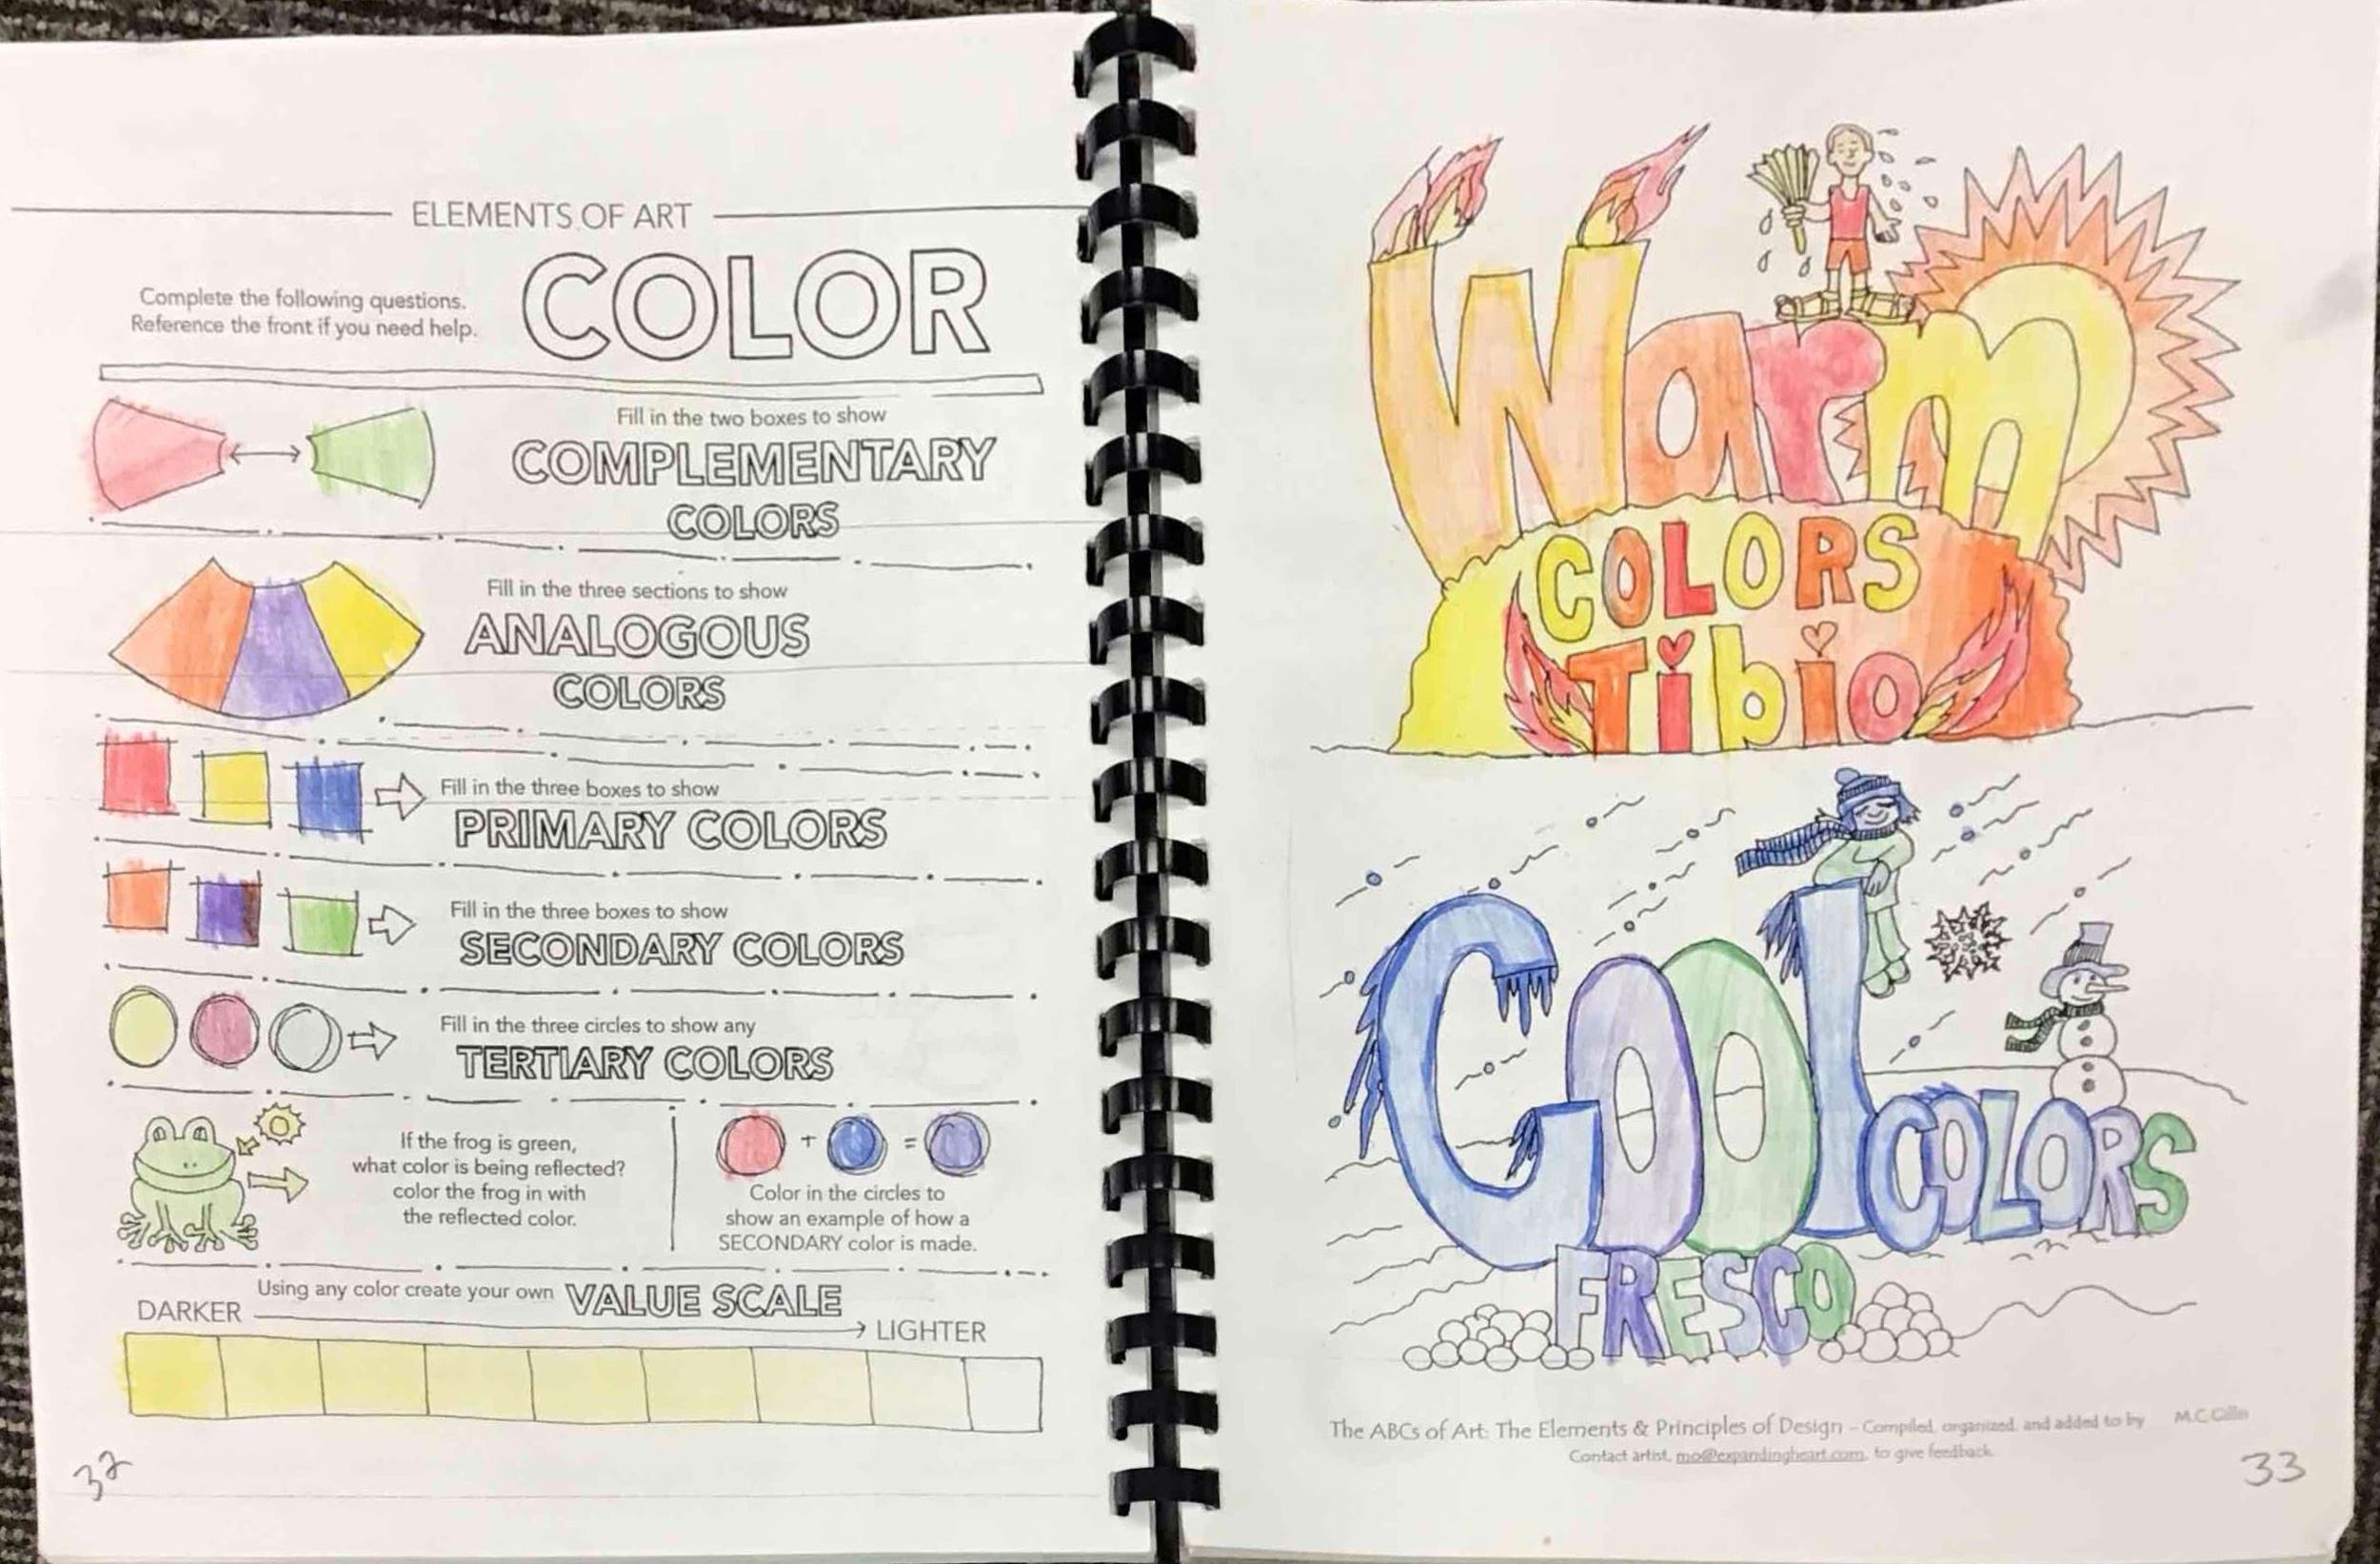 ELEMENTS OF ART
COLOR
Complete the following questions.
Reference the front if you need help.
Fill in the two boxes to show
COMPLEMENTARY
COLORS
Fill in the three sections to show
ANALOGOUS
COLORS
Fill in the three boxes to show
PRIMARY COLORS
Fill in the three boxes to show
SECONDARY COLORS
Fill in the three circles to show any
TERTIARY COLORS
If the frog is green,
what color is being reflected?
color the frog in with
the reflected color.
+ =
Color in the circles to
show an example of how a
SECONDARY color is made.
Using any color create your own VALUE SCALE
DARKER
LIGHTER
32
Warm
COLORS
Tibio
Cool COLORS
FRESCO
The ABCs of Art: The Elements & Principles of Design – Compiled, organized, and added to by M.C.Gillis
Contact artist, mo@expandingheart.com, to give feedback.
33